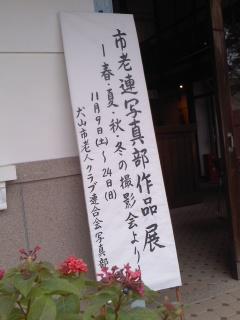 市老連写真部作品展
ー春・夏・秋・冬の撮影会よりー
11月9日(土)〜24日(日)
犬山市老人クラブ連合会写真部